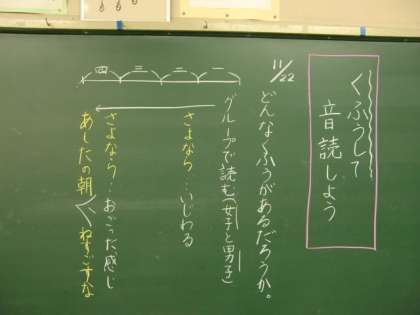 くふうして
音読しよう
11/22
どんなくふうがあるだろうか。
グループで読む（女子と男子）
一 二 三 四
さよなら…いじわる
さよなら…おこった感じ
あしたの朝 ねすごすな